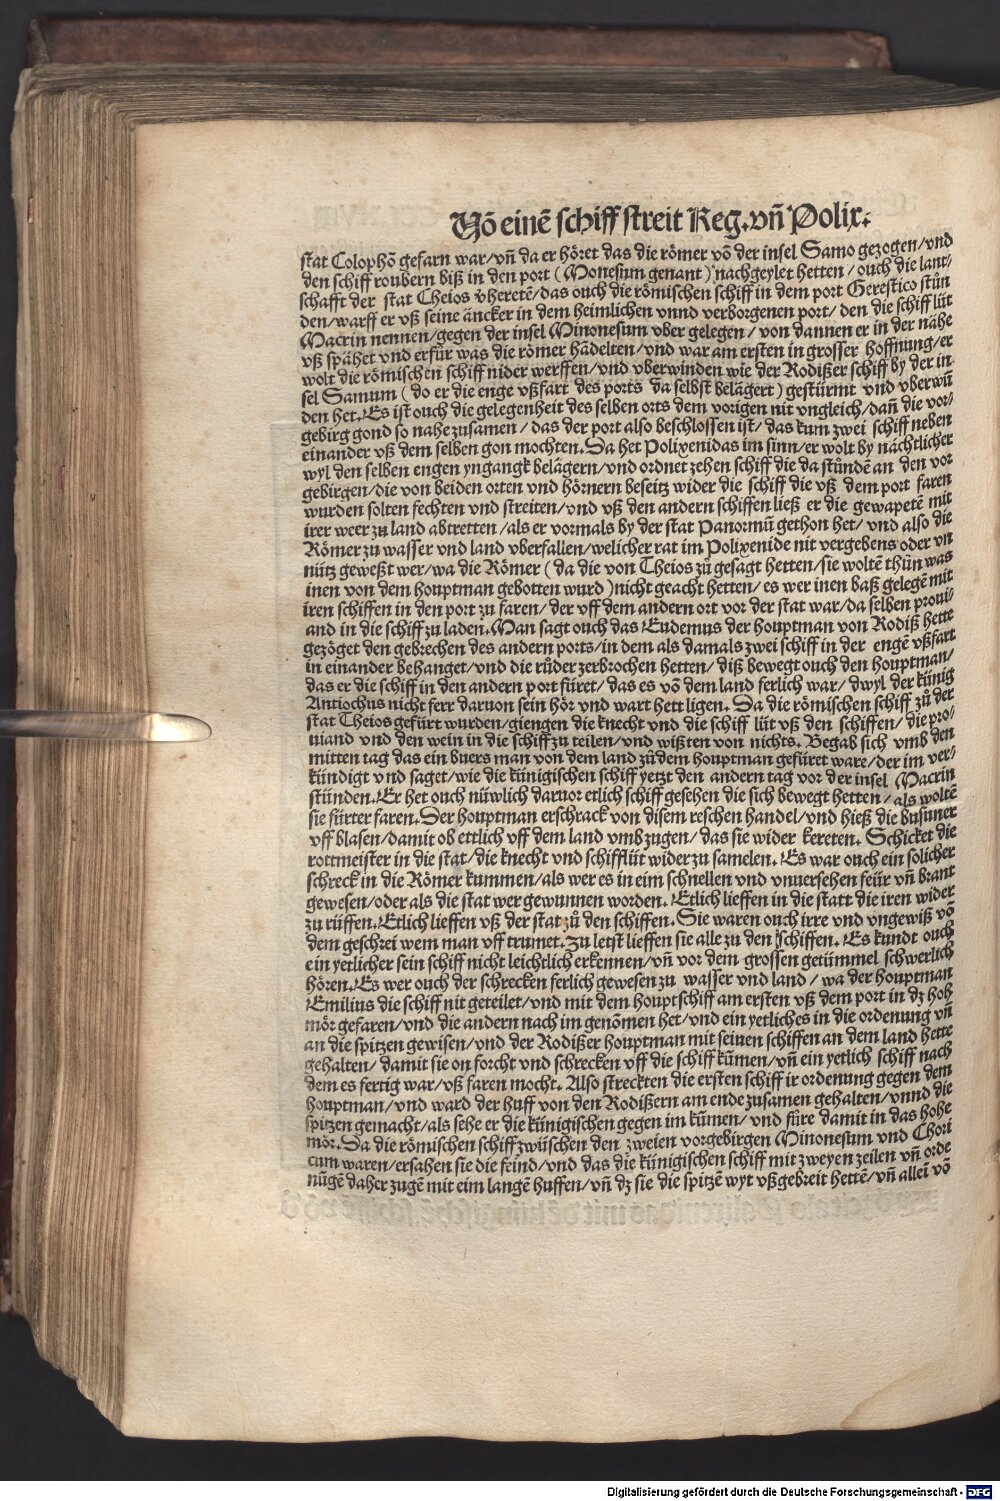 Võ einẽ schiff streit Reg. vñ Polix.
stat Colophõ gefarn war/vñ da er höret das die römer võ der insel Samo gezogen/vnd
den schiff roubern biß in den port (Monesum genant) nachgeylet hetten/ouch die lant-
schafft der stat Cheios vheretẽ/das ouch die römischen schiff in dem port Gerestico stůn
den/warff er vß seine äncker in dem heimlichen vnnd verborgenen port/den die schiff lüt
Macrin nennen/gegen der insel Minonesum vber gelegen/von dannen er in der nähe
vß spähet vnd erfůr was die römer hãdelten/vnd war am ersten in grosser hoffnung/er
wolt die römischen schiff nider werffen/vnd vberwinden wie der Rodißer schiff by der in
sel Samum (do er die enge vßfart des ports da selbst belägert) gestürmt vnd vberwũ
den het. Es ist ouch die gelegenheit des selben orts dem vorigen nit vngleich/dañ die vor-
gebirg gond so nahe zusamen/das der port also beschlossen ist/das kum zwei schiff neben
einander vß dem selben gon mochten. Da het Polixenidas im sinn/er wolt by nächtlicher
wyl den selben engen yngangk belägern/vnd ordnet zehen schiff die da stůndẽ an den vor
gebirgen/die von beiden orten vnd hörnern beseitz wider die schiff die vß dem port faren
wurden solten fechten vnd streiten/vnd vß den andern schiffen ließ er die gewapetẽ mit
irer weer zu land abtretten/als er vormals by der stat Panormũ gethon het/vnd also die
Römer zu wasser vnd land vberfallen/welicher rat im Polixenide nit vergebens oder vn
nütz geweßt wer/wa die Römer (da die von Theios zů gesagt hetten/sie woltẽ thůn was
inen von dem houptman gebotten wurd) nicht geacht hetten/es wer inen baß gelegẽ mit
iren schiffen in den port zů faren/der vff dem andern ort vor der stat war/da selben proui-
and in die schiff zu laden. Man sagt ouch das Eudemus der houptman von Rodiß hette
gezöget den gebrechen des andern ports/in dem als damals zwei schiff in der engẽ vßfart
in einander behanget/vnd die růder zerbrochen hetten/diß bewegt ouch den houptman/
das er die schiff in den andern port füret/das es võ dem land ferlich war/dwyl der künig
Antiochus nicht ferr daruon sein hör vnd wart hett ligen. Da die römischen schiff zů der
stat Theios gefürt wurden/giengen die knecht vnd die schiff lüt vß den schiffen/die pro-
uiand vnd den wein in die schiff zu teilen/vnd wißten von nichts. Begab sich vmb den
mitten tag das ein buers man von dem land zůdem houptman gefüret ware/der im ver-
kündigt vnd saget/wie die künigischen schiff yetzt den andern tag vor der insel Macrin
stünden. Er het ouch nüwlich daruor etlich schiff gesehen die sich bewegt hetten/als woltẽ
sie fürter faren. Der houptman erschrack von disem reschen handel/vnd hieß die busuner
vff blasen/damit ob ettlich vff dem land vmbzugen/das sie wider kereten. Schicket die
rottmeister in die stat/die knecht vnd schifflüt wider zu samelen. Es war ouch ein solicher
schreck in die Römer kummen/als wer es in eim schnellen vnd vnuersehen feür vñ brant
gewesen/oder als die stat wer gewunnen worden. Etlich lieffen in die statt die iren wider
zu rüffen. Etlich lieffen vß der stat zů den schiffen. Sie waren ouch irre vnd vngewiß võ
dem geschrei wem man vff trumet. Zu letst lieffen sie alle zu den schiffen. Es kundt ouch
ein yetlicher sein schiff nicht leichtlich erkennen/vñ vor dem grossen getümmel schwerlich
hören. Es wer ouch der schrecken ferlich gewesen zu wasser vnd land/wa der houptman
Emilius die schiff nit geteilet/vnd mit dem houptschiff am ersten vß dem port in dz hoh
mör gefaren/vnd die andern nach im genõmen het/vnd ein yetliches in die ordenung vñ
an die spitzen gewisen/vnd der Rodißer houptman mit seinen schiffen an dem land hette
gehalten/damit sie on forcht vnd schrecken vff die schiff kũmen/vñ ein yetlich schiff nach
dem es fertig war/vß faren mocht. Also streckten die ersten schiff ir ordenung gegen dem
houptman/vnd ward der huff von den Rodißern am ende zusamen gehalten/vnnd die
spitzen gemacht/als sehe er die künigischen gegen im kũmen/vnd fůre damit in das hohe
mör. Da die römischen schiff zwüschen den zweien vorgebirgen Minonesum vnd Chori
cum waren/ersahen sie die feind/vnd das die künigischen schiff mit zweyen zeilen vñ orde
nũgẽ daher zugẽ mit eim langẽ huffen/vñ dz sie die spitzẽ wyt vßgebreit hettẽ/vñ alleĩ võ
Digitalisierung gefördert durch die Deutsche Forschungsgemeinschaft - DFG